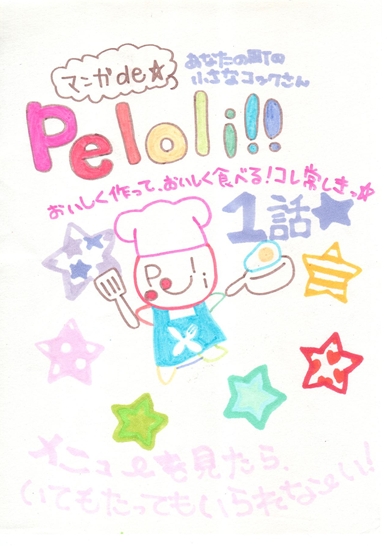 マンガde☆
あなたの町の
小さなコックさん
Peloli!!!
おいしく作って、おいしく食べる!コレ常しきっ☆
1話★
Peli
メニューを見たら、
いてもたってもいられな～い!